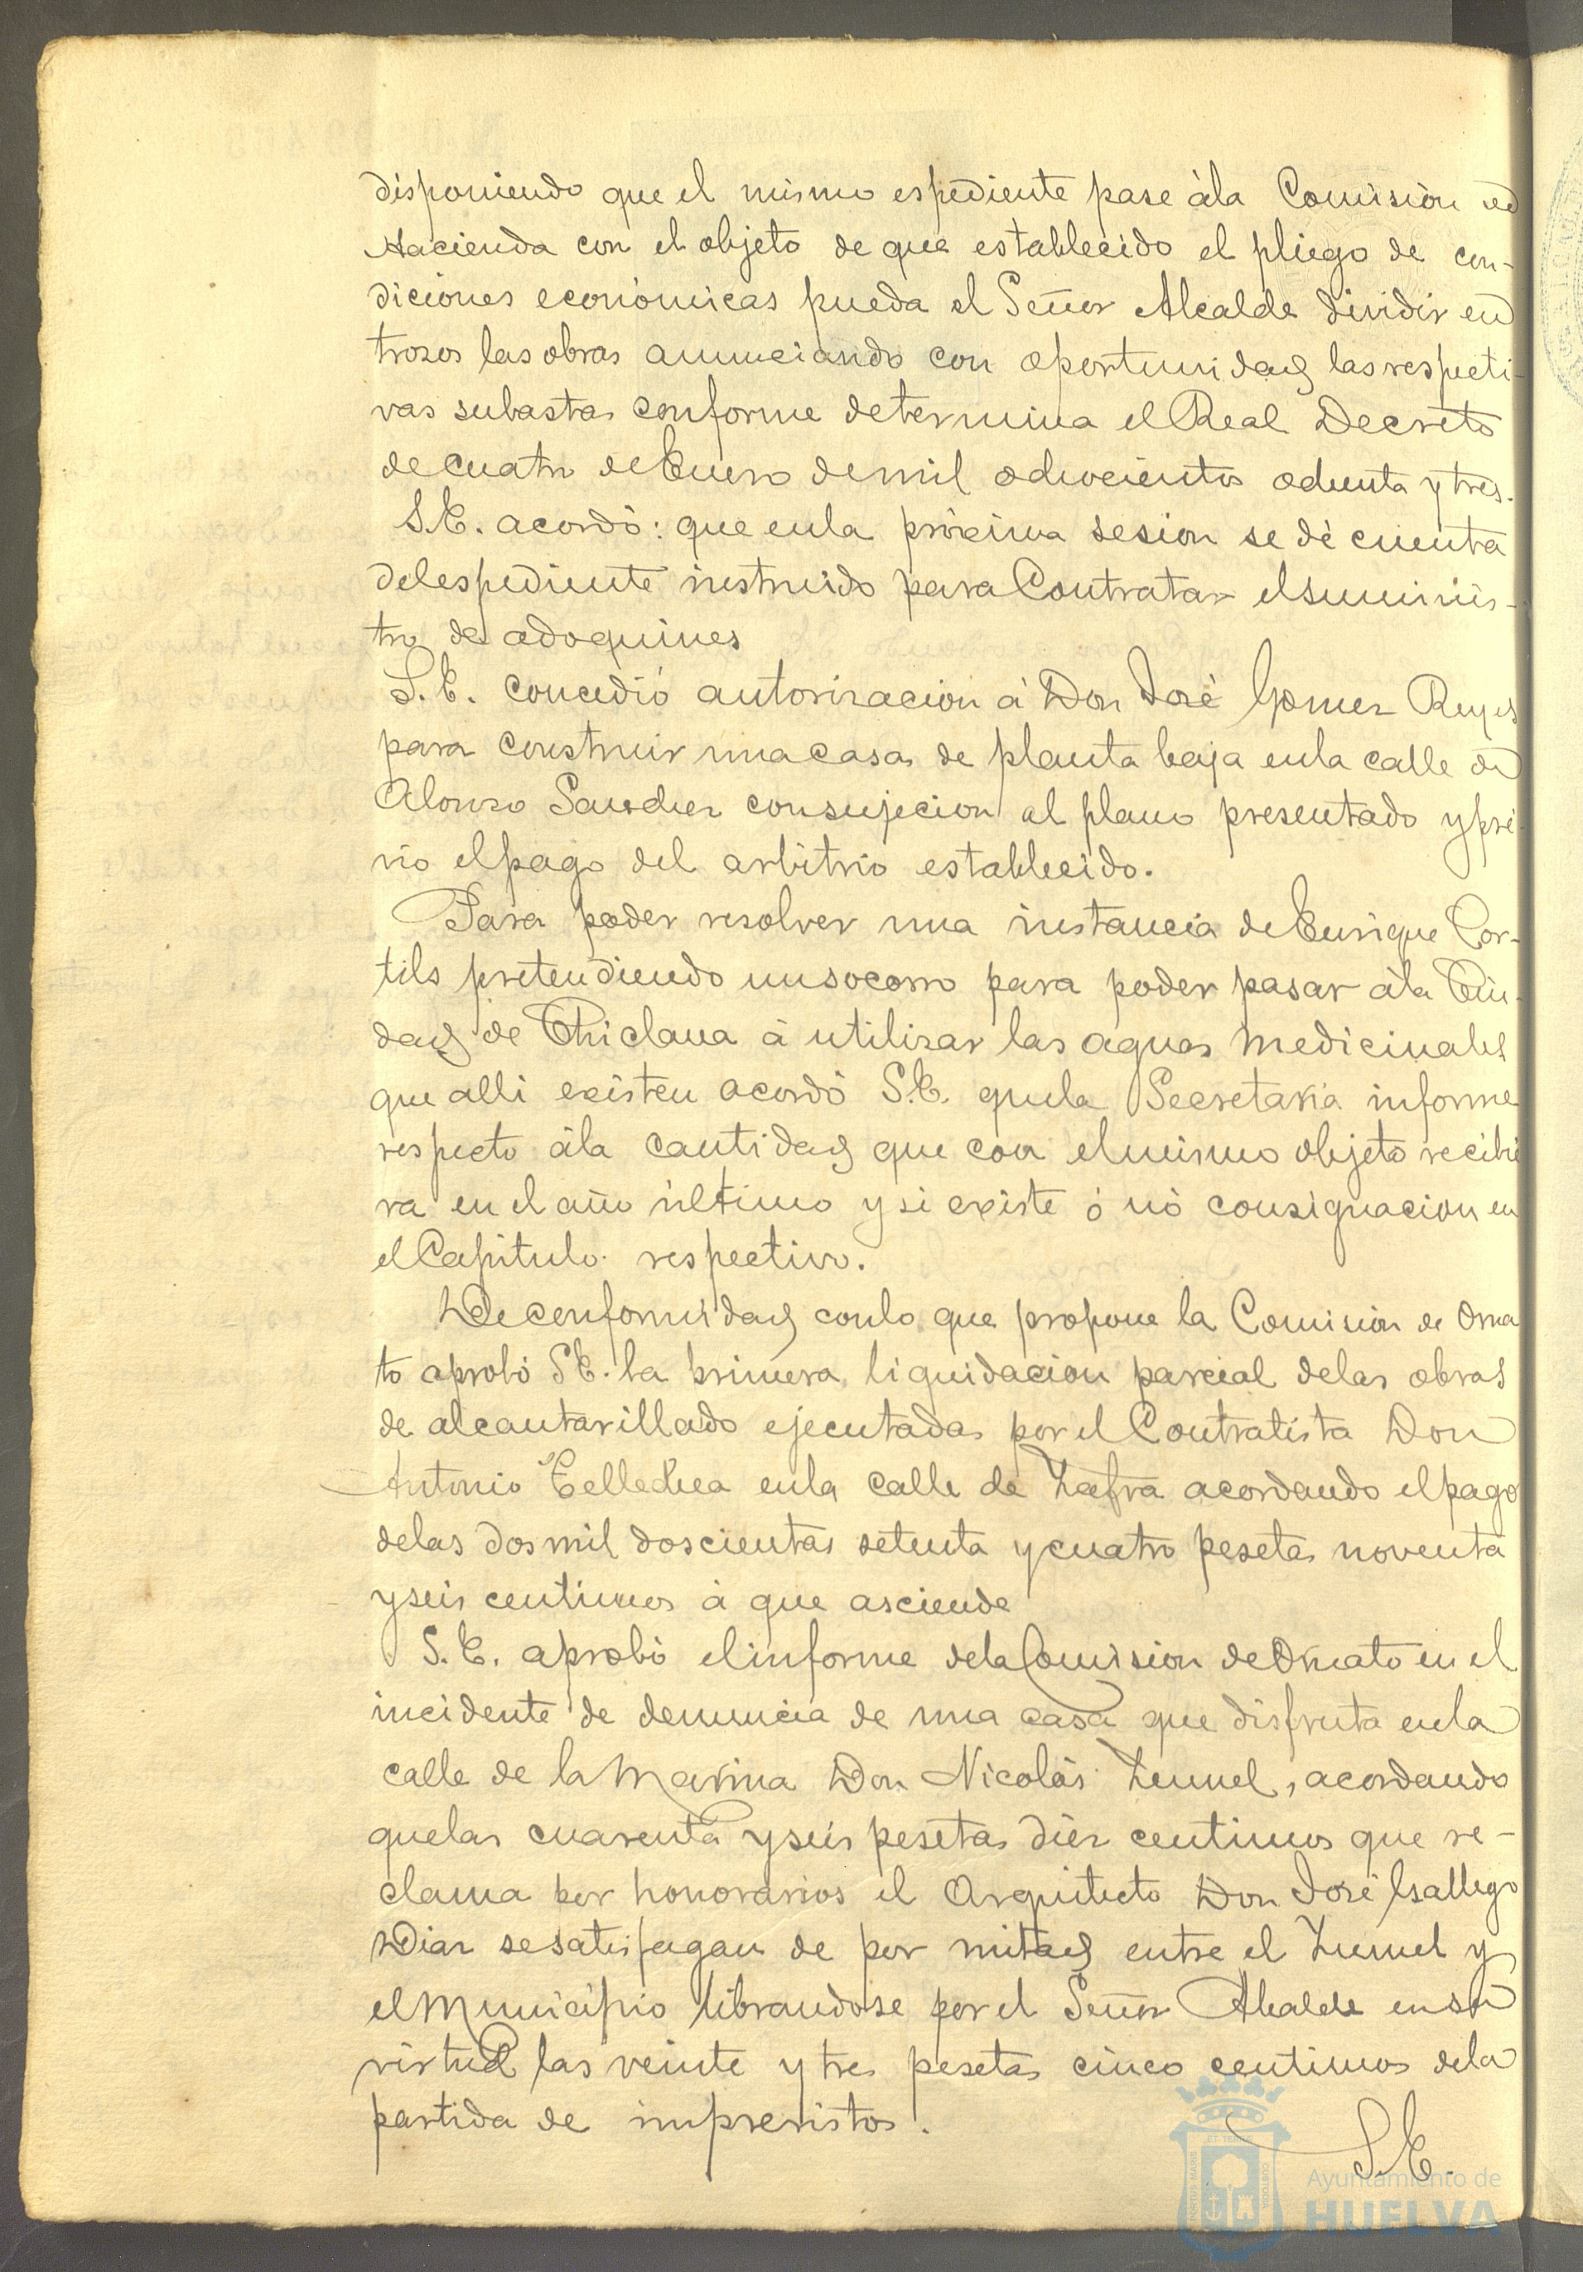 disponiendo que el mismo espediente pase àla Comision de
Hacienda con el objeto de que establecido el pliego de con-
diciones económicas pueda el Señor Alcalde dividir en
trozos las obras anunciando con oportunidad las respecti-
vas subastas conforme determina el Real Decreto
de cuatro de Enero de mil ochocientos ochenta y tres.
S.E. acordó: que en la próxima sesion se dé cuenta
del espediente instruido para Contratar el suminis-
tro de adoquines
S.E. concedió autorizacion à Don José Gomez Reyes
para construir una casa de planta baja en la calle de
Alonso Sanchez con sujecion al plano presentado y pré-
vio el pago del arbitrio establecido.
Para poder resolver una instancia de Enrique Cor-
tils pretendiendo un socorro para poder pasar àla Ciu-
dad de Chiclana à utilizar las aguas medicinales
que alli existen acordó S.E. que la Secretaria informe
respecto àla cantidad que con el mismo objeto recibie
ra en el año último y si existe ó nó consignacion en
el Capitulo respectivo.
De conformidad con lo que propone la Comision de Orna
to aprobó S.E. la primera liquidacion parcial de las obras
de alcantarillado ejecutadas por el Contratista Don
Antonio Tellechea en la calle de Zafra acordando el pago
de las dos mil doscientas setenta y cuatro pesetas noventa
y seis centimos à que asciende
S.E. aprobó el informe de la Comision de Ornato en el
incidente de denuncia de una casa que disfruta en la
calle de la Marina Don Nicolás Zumel, acordando
que las cuarenta y seis pesetas diez centimos que re-
clama por honorarios el Arquitecto Don José Gallego
Diaz se satisfagan de por mitad entre el Zumel y
el Municipio librandose por el Señor Alcalde en su
virtud las veinte y tres pesetas cinco centimos de la
partida de imprevistos.
S.E.
Ayuntamiento de
HUELVA